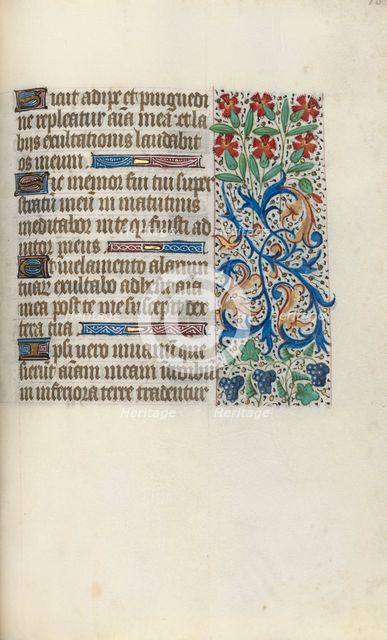 Sicut adipe et pinguedi
ne repleatur aīa mea: et la
bijs exultationis laudabit
os meum
Sic memor fui tui super
stratū meū in matutinis
meditabor in te: quia fuisti ad
iutor meus
Et in velamento alarum
tuarū exultabo adhesit aīa
mea post te me suscepit dex
tera tua
Ipsi vero in vanū que
sierunt aīam meam introibūt
in inferiora terre tradentur
Heritage Heritage Heritage